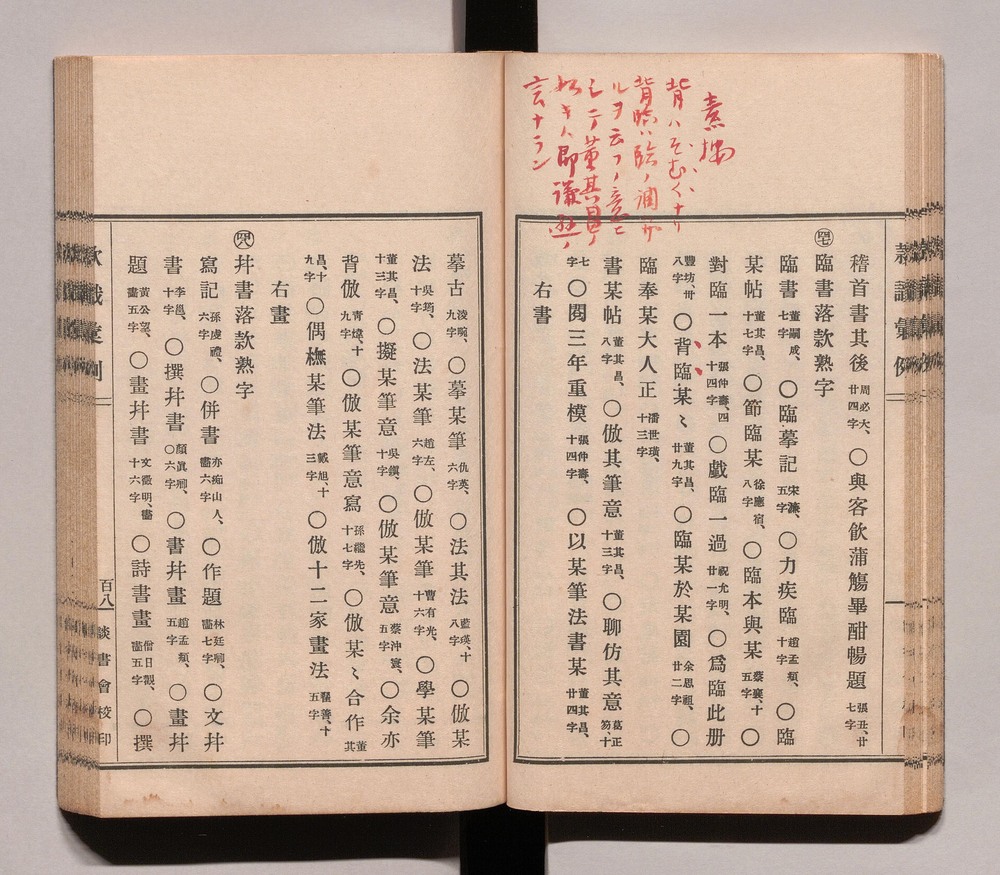 背ハそむくナリ
言ナラン
稽首書其後周必大、廿四字、〇與客飮蒲觴畢酣暢題張丑、廿七字、
㊼臨書落款熟字
臨書董嗣成、七字、〇臨摹記宋濂、五字、〇力疾臨趙孟頫、十字、〇臨
某帖董其昌、十七字、〇節臨某徐應宿、八字、〇臨本與某蔡襄、十五字、〇
對臨一本張仲壽、四十四字、〇戲臨一過祝允明、廿一字、〇爲臨此册
豐坊、卅八字、〇背臨某〻董其昌、廿九字、〇臨某於某園余思祖、廿二字、〇
臨奉某大人正潘世璜、十三字、
書某帖董其昌、八字、〇倣其筆意董其昌、十三字、〇聊仿其意葛正笏、十
七字、〇閱三年重模張仲壽、十四字、〇以某筆法書某董其昌、廿四字、
右書
摹古淩畹、九字、〇摹某筆仇英、六字、〇法其法藍瑛、十八字、〇倣某
法吳筠、十字、〇法某筆趙左、六字、〇倣某筆曹有光、十六字、〇學某筆
董其昌、十三字、〇擬某筆意吳鎭、十字、〇倣某筆意蔡沖寰、五字、〇余亦
背倣靑煒、十九字、〇倣某筆意寫孫繼先、十七字、〇倣某〻合作董其
昌、十九字、〇偶橅某筆法戴旭、十三字、〇倣十二家畫法翟善、十五字、
右畫
㊽幷書落款熟字
寫記孫虔禮、六字、〇併書亦痴山人、畵六字、〇作題林廷㭿、畵七字、〇文幷
書李邕、十字、〇撰幷書顏眞卿、〇六字、〇書幷畫趙孟頫、五字、〇畫幷
題黃公望、畵五字、〇畫幷書文徵明、畵十六字、〇詩書畫僧日觀、畵五字、〇撰
百八
談書會校印